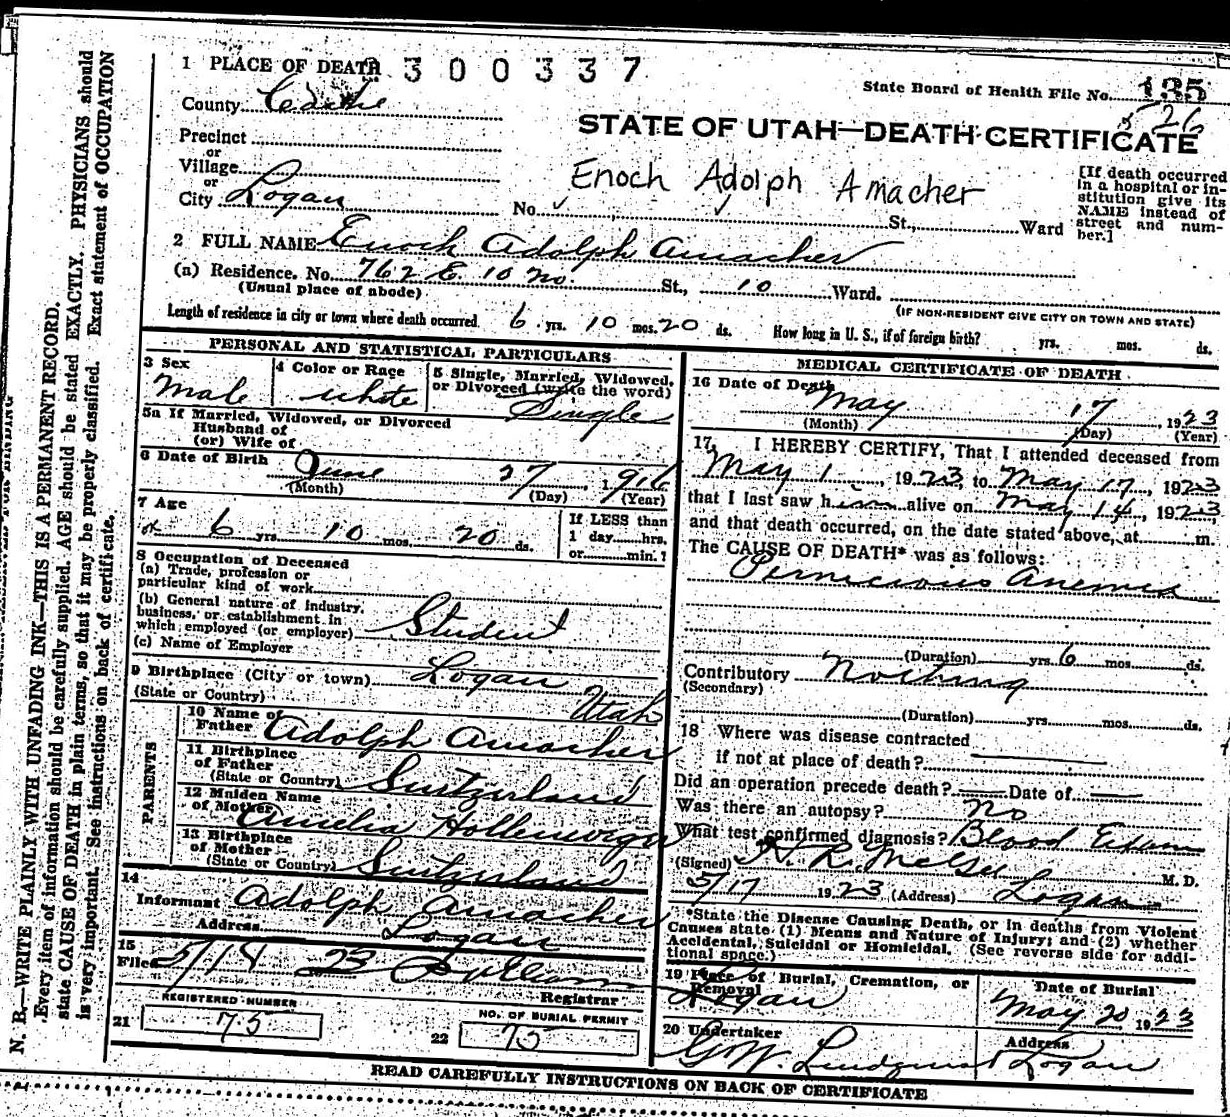 1 PLACE OF DEATH 300337
State Board of Health File No. 135
526
County Cache
STATE OF UTAH—DEATH CERTIFICATE
Precinct
or
Village
or
City Logan
Enoch Adolph Amacher
No. St., Ward
[If death occurred
in a hospital or in-
stitution give its
NAME instead of
street and num-
ber.]
2 FULL NAME Enoch Adolph Amacher
(a) Residence. No. 762 E. 10 No. St., 10 Ward.
(Usual place of abode)
(IF NON-RESIDENT GIVE CITY OR TOWN AND STATE)
Length of residence in city or town where death occurred. 6 yrs. 10 mos. 20 ds. How long in U. S., if of foreign birth? yrs. mos. ds.
PERSONAL AND STATISTICAL PARTICULARS
3 Sex
Male
4 Color or Race
white
5 Single, Married, Widowed,
or Divorced (write the word)
Single
5a If Married, Widowed, or Divorced
Husband of
(or) Wife of
6 Date of Birth June 27, 1916
(Month) (Day) (Year)
7 Age
6 yrs. 10 mos. 20 ds.
If LESS than
1 day hrs.
or min.?
8 Occupation of Deceased
(a) Trade, profession or
particular kind of work
(b) General nature of industry,
business, or establishment in
which employed (or employer) Student
(c) Name of Employer
9 Birthplace (City or town) Logan
(State or Country) Utah
PARENTS
10 Name of
Father Adolph Amacher
11 Birthplace
of Father
(State or Country) Switzerland
12 Maiden Name
of Mother Amelia Hollenweger
13 Birthplace
of Mother
(State or Country) Switzerland
14
Informant Adolph Amacher
Address Logan
15
Filed 5/14 23
Registrar
REGISTERED NUMBER
21 75
NO. OF BURIAL PERMIT
22 75
MEDICAL CERTIFICATE OF DEATH
16 Date of Death
May 17, 1923
(Month) (Day) (Year)
17 I HEREBY CERTIFY, That I attended deceased from
May 1, 1923, to May 17, 1923
that I last saw him alive on May 14, 1923,
and that death occurred, on the date stated above, at m.
The CAUSE OF DEATH* was as follows:
Pernicious Anemia
(Duration) yrs. 6 mos. ds.
Contributory Nothing
(Secondary)
(Duration) yrs. mos. ds.
18 Where was disease contracted
If not at place of death?
Did an operation precede death? Date of
Was there an autopsy? No
What test confirmed diagnosis? Blood Exam
(Signed) H. R. McGee M. D.
5/17 1923 (Address) Logan
*State the Disease Causing Death, or in deaths from Violent
Causes state (1) Means and Nature of Injury; and (2) whether
Accidental, Suicidal or Homicidal. (See reverse side for addi-
tional space.)
19 Place of Burial, Cremation, or
Removal
Logan
Date of Burial
May 20 1923
20 Undertaker
G. W. Lindquist
Address
Logan
READ CAREFULLY INSTRUCTIONS ON BACK OF CERTIFICATE
N. B.—WRITE PLAINLY WITH UNFADING INK—THIS IS A PERMANENT RECORD.
Every item of information should be carefully supplied. AGE should be stated EXACTLY. PHYSICIANS should
state CAUSE OF DEATH in plain terms, so that it may be properly classified. Exact statement of OCCUPATION
is very important. See instructions on back of certificate.